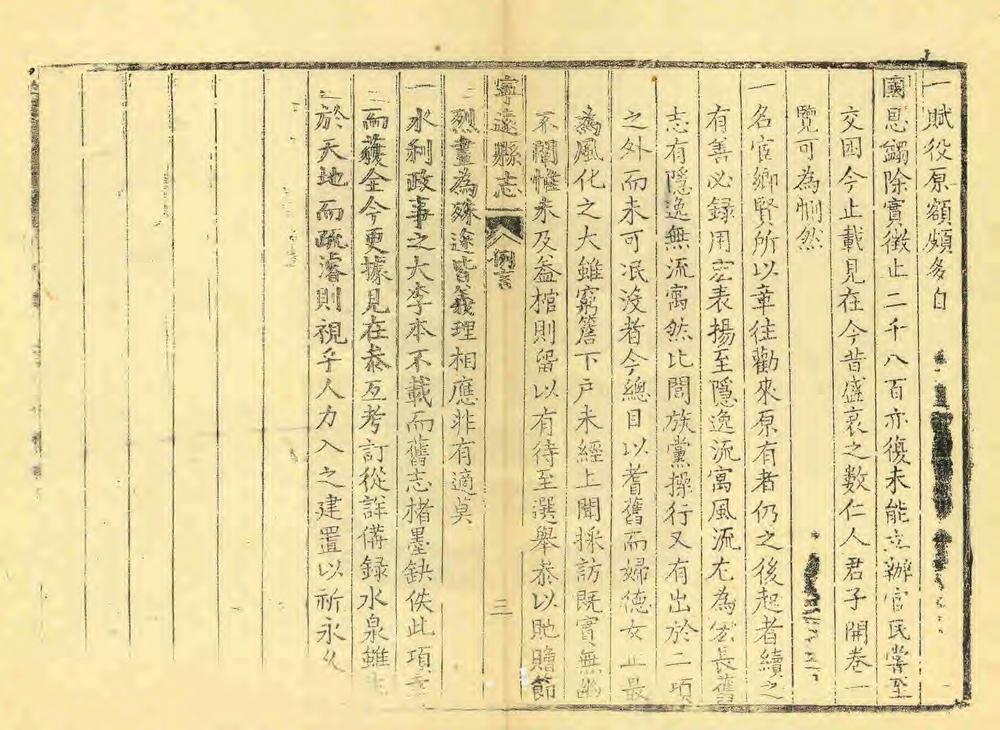 一賦役原額頗多自
國恩蠲除實徵止二千八百亦復未能立辦官民嘗至
交困今止載見在今昔盛衰之數仁人君子開卷一
覽可為惻然
一名宦鄉賢所以章往勸來原有者仍之後起者續之
有善必録用宏表揚至隱逸流寓風流尤為宏長舊
志有隱逸無流寓然比閭族黨操行又有出於二項
之外而未可泯沒者今總目以耆舊而婦德女正最
為風化之大雖窮簷下戶未經上聞採訪既實無幽
不闡惟未及盖棺則留以有待至選舉恭以貤贈節
寧遠縣志 例言 三
烈畫為殊途皆義理相應非有適莫
一水利政事之大李本不載而舊志楮墨缺佚此項
而獲全今更據見在叅互考訂從詳備録水泉雖
於天地而疏濬則視乎人力入之建置以祈永久